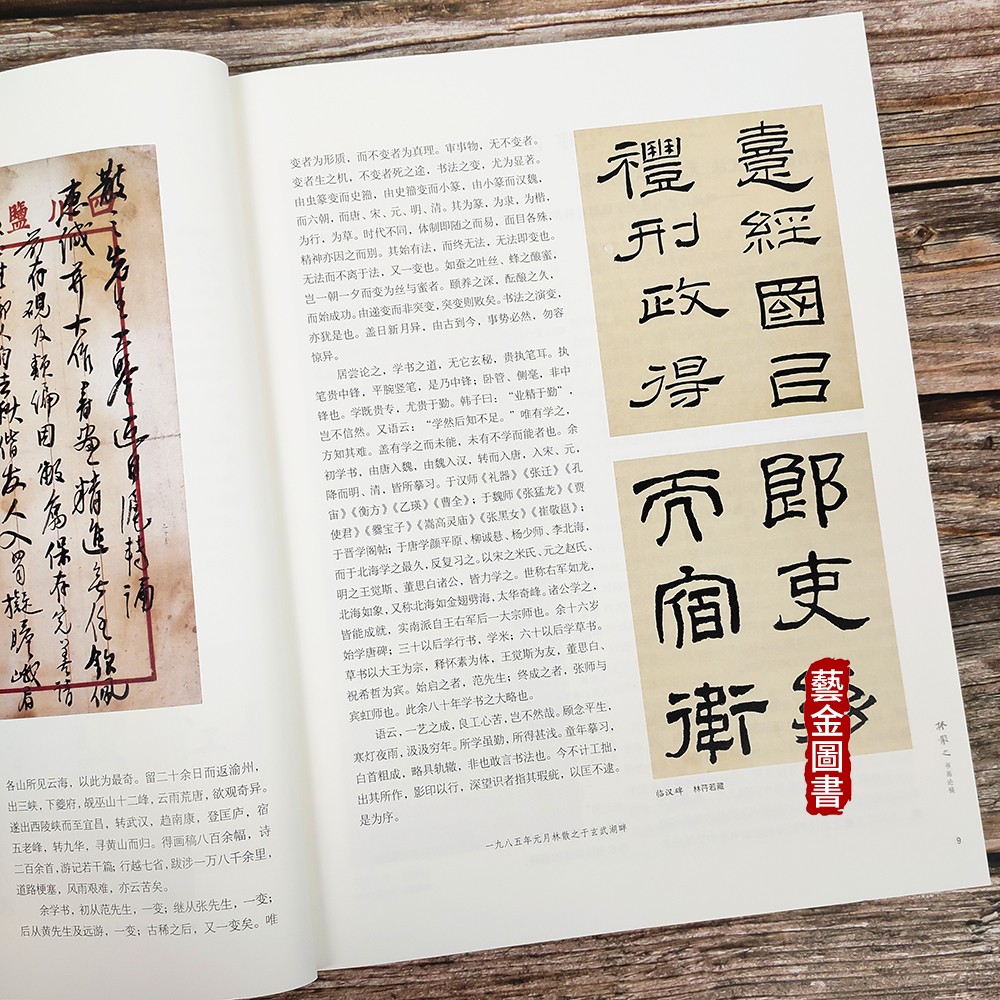 散之先生大鉴近日
大作書畫精進無任欽佩
保存完善
友人入蜀擬
各山所见云海，以此为最奇。留二十余日而返渝州，
出三峡，下夔府，觇巫山十二峰，云雨荒唐，欲观奇异。
遂出西陵峡而至宜昌，转武汉，趋南康，登匡庐，宿
五老峰，转九华，寻黄山而归。得画稿八百余幅，诗
二百余首，游记若干篇；行越七省，跋涉一万八千余里，
道路梗塞，风雨艰难，亦云苦矣。
余学书，初从范先生，一变；继从张先生，一变；
后从黄先生及远游，一变；古稀之后，又一变矣。唯
变者为形质，而不变者为真理。审事物，无不变者。
变者生之机，不变者死之途，书法之变，尤为显著。
由虫篆变而史籀，由史籀变而小篆，由小篆而汉魏，
而六朝，而唐、宋、元、明、清。其为篆，为隶，为楷，
为行，为草。时代不同，体制即随之而易，而目各殊，
精神亦因之而别。其始有法，而终无法，无法即变也。
无法而不离于法，又一变也。如蚕之吐丝、蜂之酿蜜，
岂一朝一夕而变为丝与蜜者。颐养之深，酝酿之久，
而始成功。由递变而非突变，突变则败矣。书法之演变，
亦犹是也。盖日新月异，由古到今，事势必然，勿容
惊异。
居尝论之，学书之道，无它玄秘，贵执笔耳。执
笔贵中锋，平腕竖笔，是乃中锋；卧管、侧毫，非中
锋也。学既贵专，尤贵于勤。韩子曰：“业精于勤”，
岂不信然。又语云：“学然后知不足。”唯有学之，
方知其难。盖有学之而未能，未有不学而能者也。余
初学书，由唐入魏，由魏入汉，转而入唐，入宋、元，
降而明、清，皆所摹习。于汉师《礼器》《张迁》《孔
宙》《衡方》《乙瑛》《曹全》；于魏师《张猛龙》《贾
使君》《爨宝子》《嵩高灵庙》《张黑女》《崔敬邕》；
于晋学阁帖；于唐学颜平原、柳诚悬、杨少师、李北海，
而于北海学之最久，反复习之。以宋之米氏、元之赵氏、
明之王觉斯、董思白诸公，皆力学之。世称右军如龙，
北海如象，又称北海如金翅劈海，太华奇峰。诸公学之，
皆能成就，实南派自王右军后一大宗师也。余十六岁
始学唐碑；三十以后学行书，学米；六十以后学草书。
草书以大王为宗，释怀素为体，王觉斯为友，董思白、
祝希哲为宾。始启之者，范先生；终成之者，张师与
宾虹师也。此余八十年学书之大略也。
语云，一艺之成，良工心苦，岂不然哉。顾念平生，
寒灯夜雨，汲汲穷年。所学虽勤，所得甚浅。童年摹习，
白首粗成，略具轨辙，非也敢言书法也。今不计工拙，
出其所作，影印以行，深望识者指其瑕疵，以匡不逮。
是为序。
一九八五年元月林散之于玄武湖畔
經國
禮刑政得
郎吏
而宿衛
临汉碑 林荇若藏
林散之
书画近预
9
藝金圖書